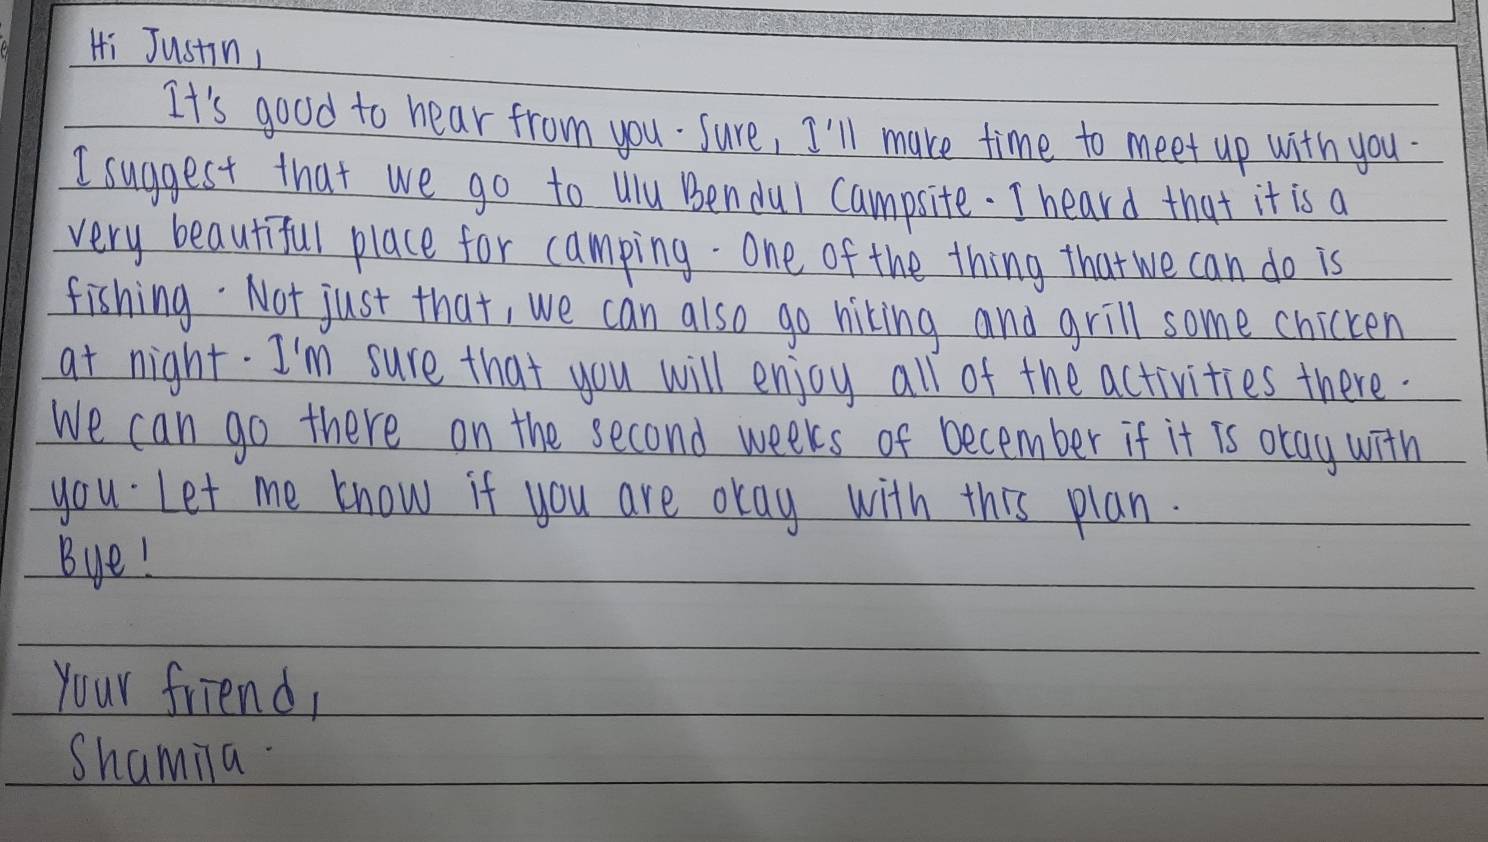 Hi Justin,
It's good to hear from you. Sure, I'll make time to meet up with you.
I suggest that we go to Ulu Bendul Campsite. I heard that it is a
very beautiful place for camping. One of the thing that we can do is
fishing. Not just that, we can also go hiking and grill some chicken
at night. I'm sure that you will enjoy all of the activities there.
We can go there on the second weeks of December if it is okay with
you. Let me know if you are okay with this plan.
Bye!
Your friend,
Shamila.